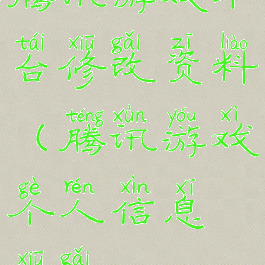 腾讯游戏平
tái xiū gǎi zī liào
台修改资料
téng xùn yóu xì
（腾讯游戏
gè rén xìn xī
个人信息
xiū gǎi